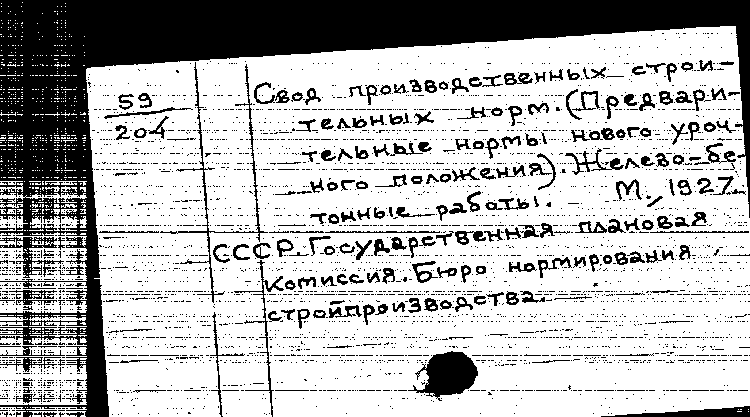 59
204
Свод производственных строи-
тельных норм. (Предвари-
тельные нормы нового уроч-
ного положения). Железо-бе-
тонные работы. М., 1927.
СССР. Государственная плановая
комиссия. Бюро нормирования
стройпроизводства.